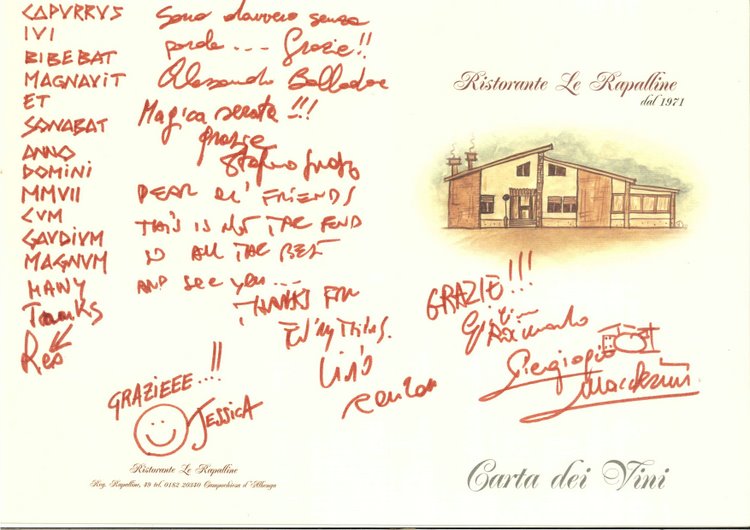 CAPVRRVS
IVI
BIBEBAT
MAGNAVIT
ET
SONABAT
ANNO
DOMINI
MMVII
CVM
GAVDIVM
MAGNVM
MANY
Thanks
Sono davvero senza
parole... Grazie!!
Alessandro
Magica serata!!!
grazie
Stefano
DEAR OL' FRIENDS
THIS IS NOT THE END
SO ALL THE BEST
AND see you...
THANKS FOR
GRAZIEEE...!!
JESSICA
Ristorante Le Rapalline
Reg. Rapalline, 48 tel. 0182 20340 Campochiesa d'Albenga
Ristorante Le Rapalline
dal 1971
GRAZIE!!!
Piergiorgio
Carta dei Vini